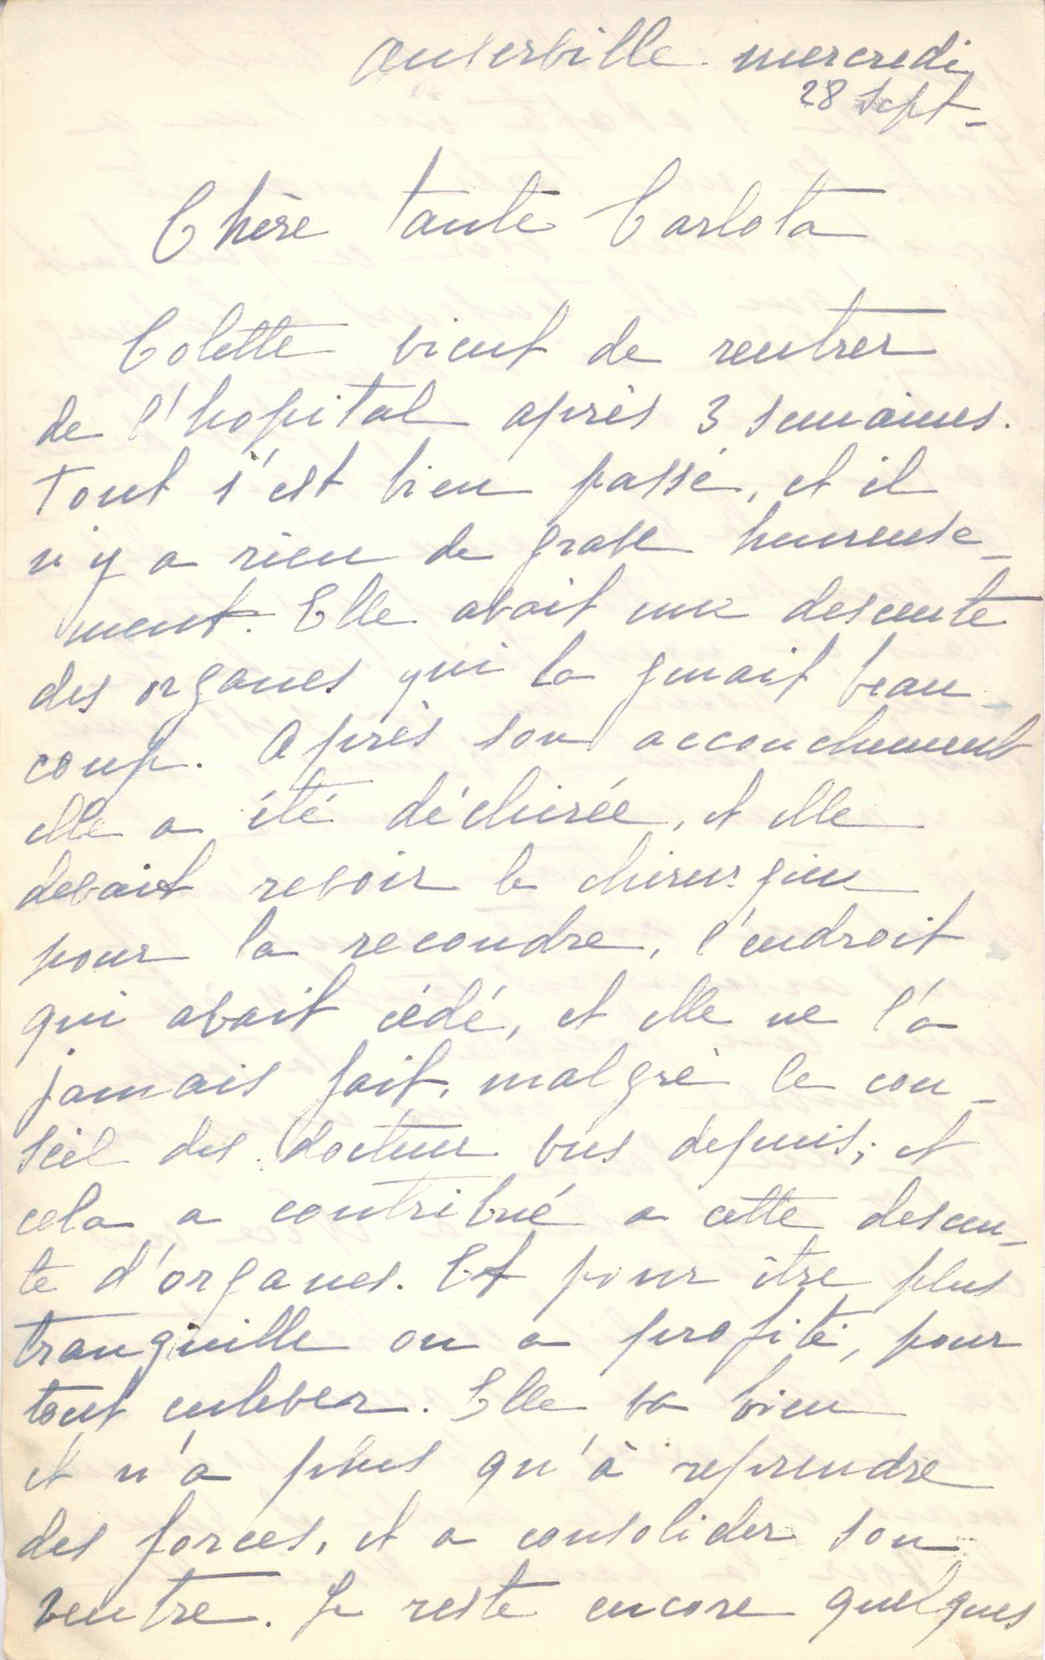 Auterville mercredi
28 Sept -
Chère tante Carlota
Colette vient de rentrer
de l'hopital après 3 semaines.
Tout s'est bien passé, et il
n'y a rien de grave heureuse-
ment. Elle avait une descente
des organes qui la genait beau-
coup. Après son accouchement
elle a été déchirée, et elle
devait revoir le chirurgien
pour la recoudre, l'endroit
qui avait cédé, et elle ne l'a
jamais fait, malgré le con-
seil des docteur vus depuis; et
cela a contribué a cette descen-
te d'organes. Et pour être plus
tranquille on a profité, pour
tout enlever. Elle va bien
et n'a plus qu'à reprendre
des forces, et a consolider son
ventre. Je reste encore quelques